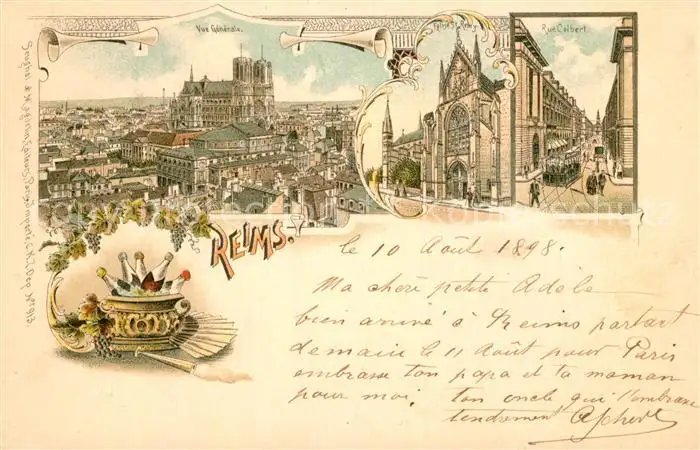 Vue Générale.
Rue Colbert
REIMS.
le 10 Août 1898.
Ma chère petite Adèle
bien arrivé à Reims partant
demain le 11 Août pour Paris
embrasse ton papa et ta maman
pour moi. ton oncle qui t'embrasse
tendrement